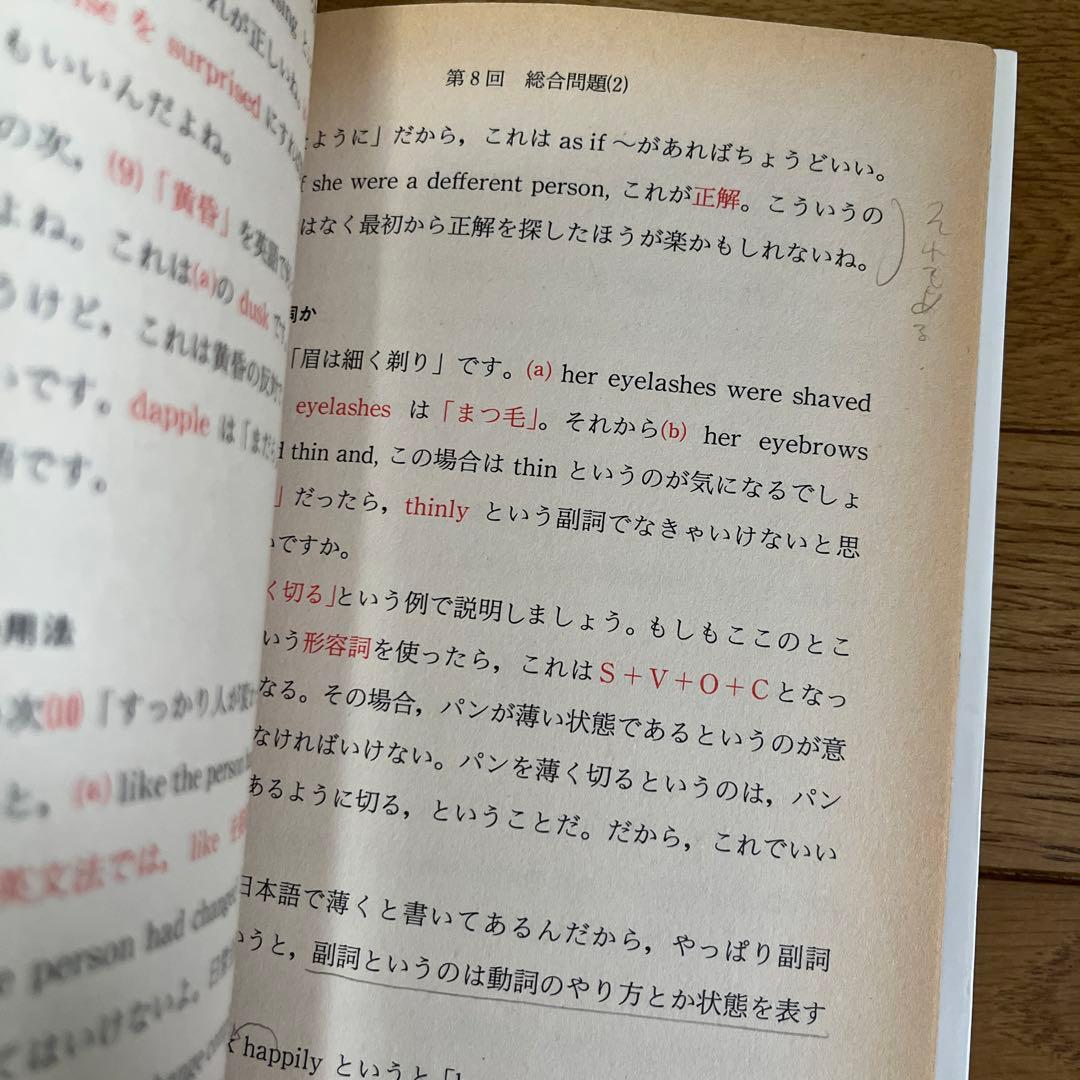 を surprised に
もいいんだよね。
の次，(9)「黄昏」を英語で
よね。これは(a)の dusk で
うけど，これは黄昏の反対で
いです。dapple は「まだ
語です。
用法
次(10)「すっかり人が変
と，(a) like the person
英文法では，like
person had changed
てはいけないよ。
第8回 総合問題(2)
ように」だから，これは as if ～があればちょうどいい。
f she were a defferent person, これが正解。こういうの
はなく最初から正解を探したほうが楽かもしれないね。
詞か
「眉は細く剃り」です。(a) her eyelashes were shaved
eyelashes は「まつ毛」。それから(b) her eyebrows
d thin and, この場合は thin というのが気になるでしょ
」だったら，thinly という副詞でなきゃいけないと思
いですか。
く切る」という例で説明しましょう。もしもここのとこ
いう形容詞を使ったら，これはS＋V＋O＋Cとなっ
なる。その場合，パンが薄い状態であるというのが意
なければいけない。パンを薄く切るというのは，パン
あるように切る，ということだ。だから，これでいい
日本語で薄くと書いてあるんだから，やっぱり副詞
いうと，副詞というのは動詞のやり方とか状態を表す
happily というと「